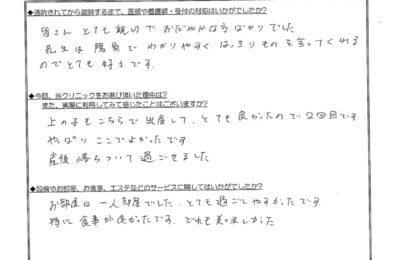 ◆通院されてから退院するまで、医師や看護師・受付の対応はいかがでしたか?
皆さん とても親切で おだやかな方ばかりでした
先生は 陽気で わかりやすく はっきりものを言ってくれる
のでとても 好きです。
◆今回、当クリニックをお選び頂いた理由は?
また、実際に利用してみて感じたことはございますか?
上の子もこちらで出産して、とても良かったので2回目です
やっぱり ここでよかったです
産後 落ちついて 過ごせました
◆設備やお部屋、お食事、エステなどのサービスに関してはいかがでしたか?
お部屋は 一人部屋でした。とても過ごしやすかったです
特に 食事が良かったです。どれも美味しかった